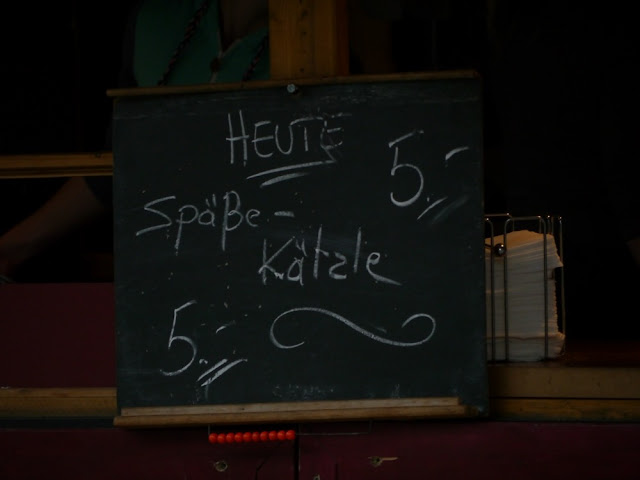 HEUTE
5.-
Späße-
Kätzle
5.-